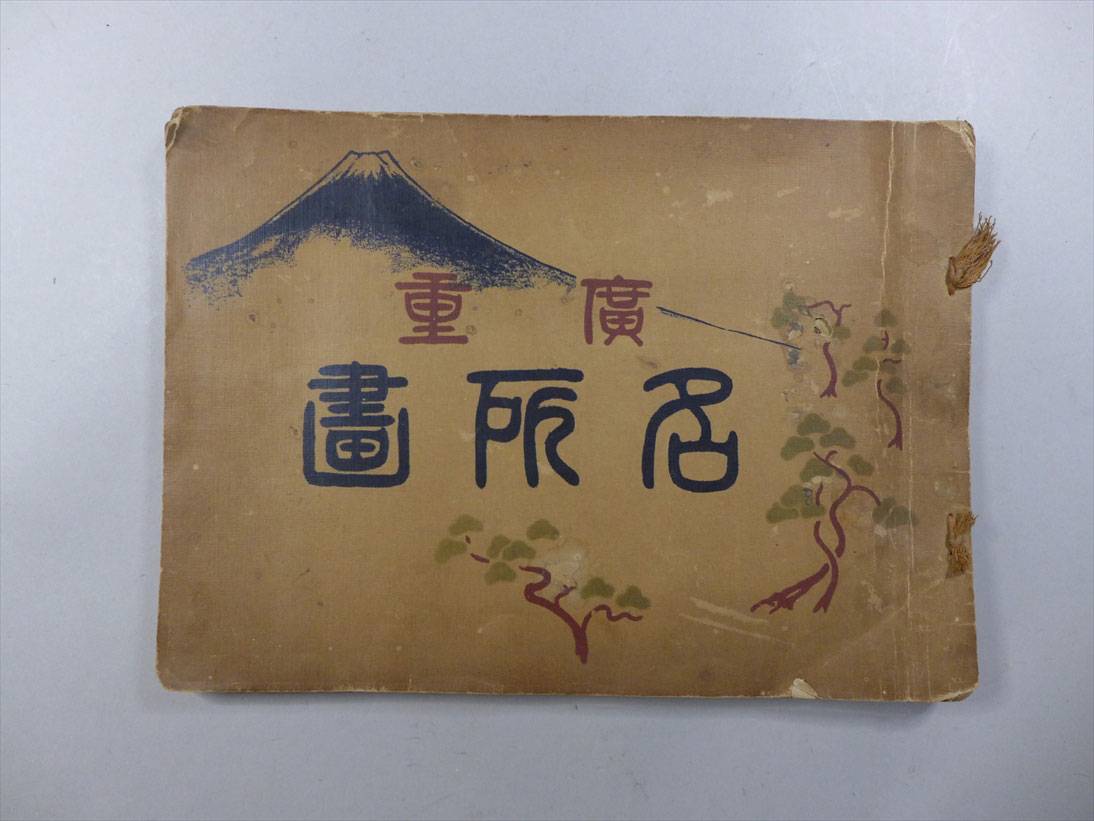 廣重
名所畫